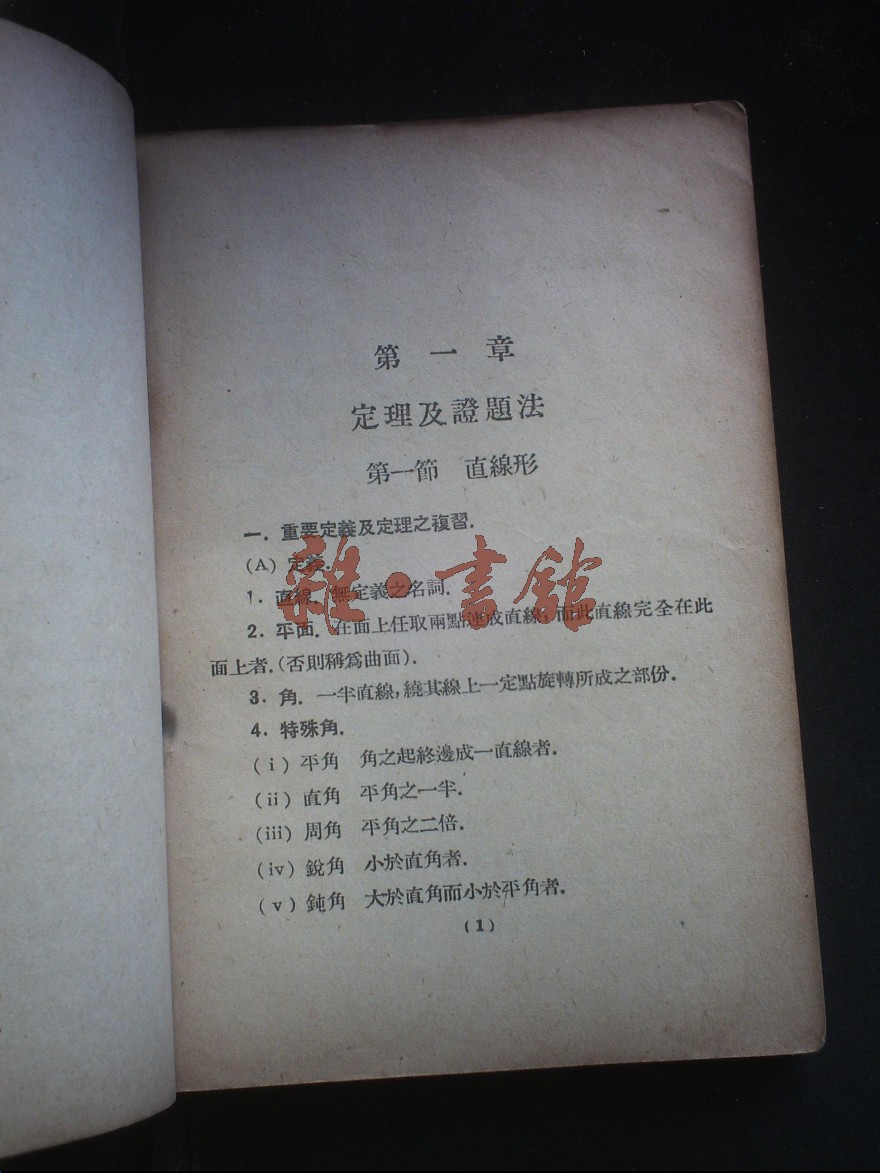 第一章
定理及證題法
第一節 直線形
一．重要定義及定理之複習．
(A) 定義．
1．直線．無定義之名詞．
2．平面．在面上任取兩點連成直線，而此直線完全在此
面上者．(否則稱爲曲面)．
3．角．一半直線，繞其線上一定點旋轉所成之部份．
4．特殊角．
(i) 平角 角之起終邊成一直線者．
(ii) 直角 平角之一半．
(iii) 周角 平角之二倍．
(iv) 銳角 小於直角者．
(v) 鈍角 大於直角而小於平角者．
(1)
雜·書館